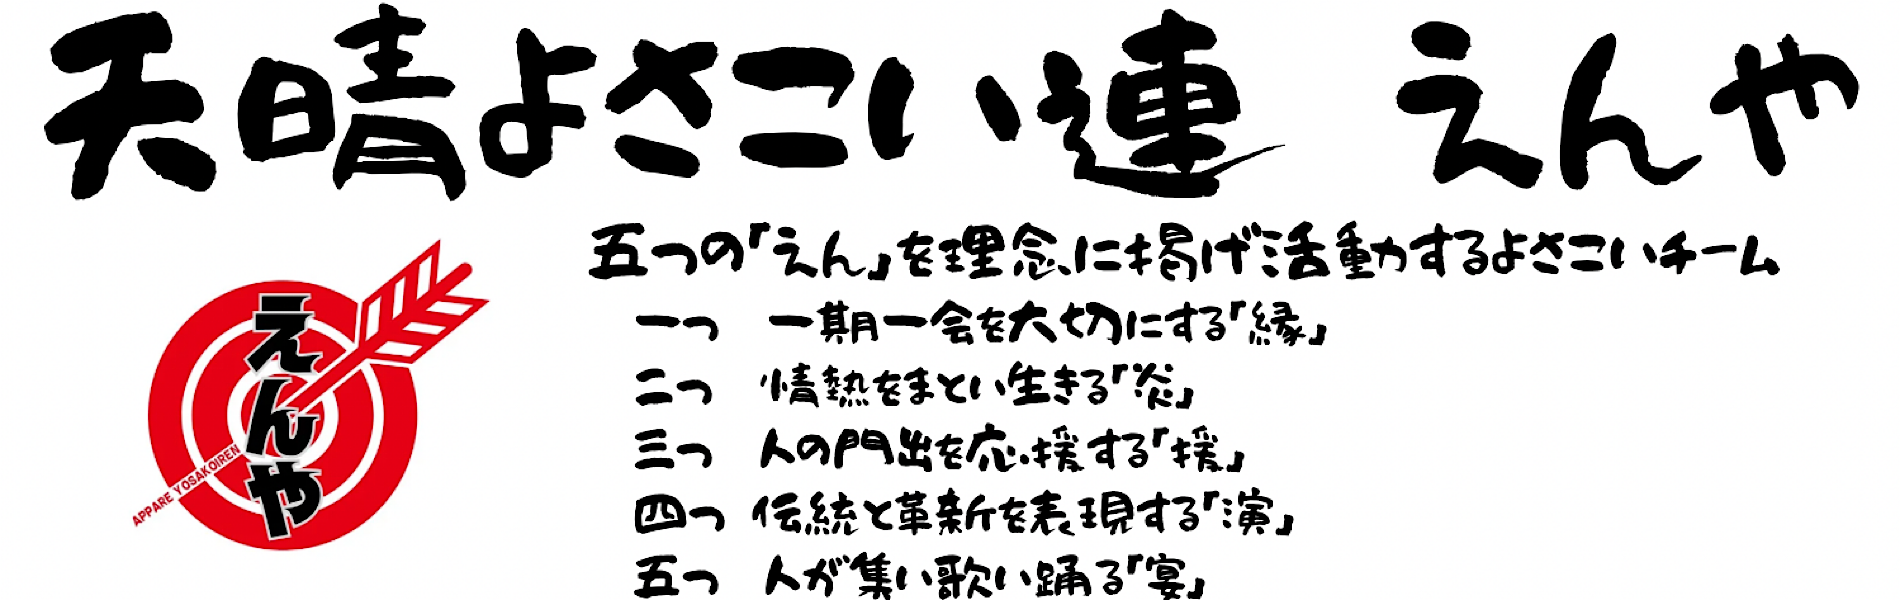 天晴よさこい連　えんや
五つの「えん」を理念に掲げ活動するよさこいチーム
一つ　一期一会を大切にする「縁」
二つ　情熱をまとい生きる「炎」
三つ　人の門出を応援する「援」
四つ　伝統と革新を表現する「演」
五つ　人が集い歌い踊る「宴」
えんや
APPARE YOSAKOIREN